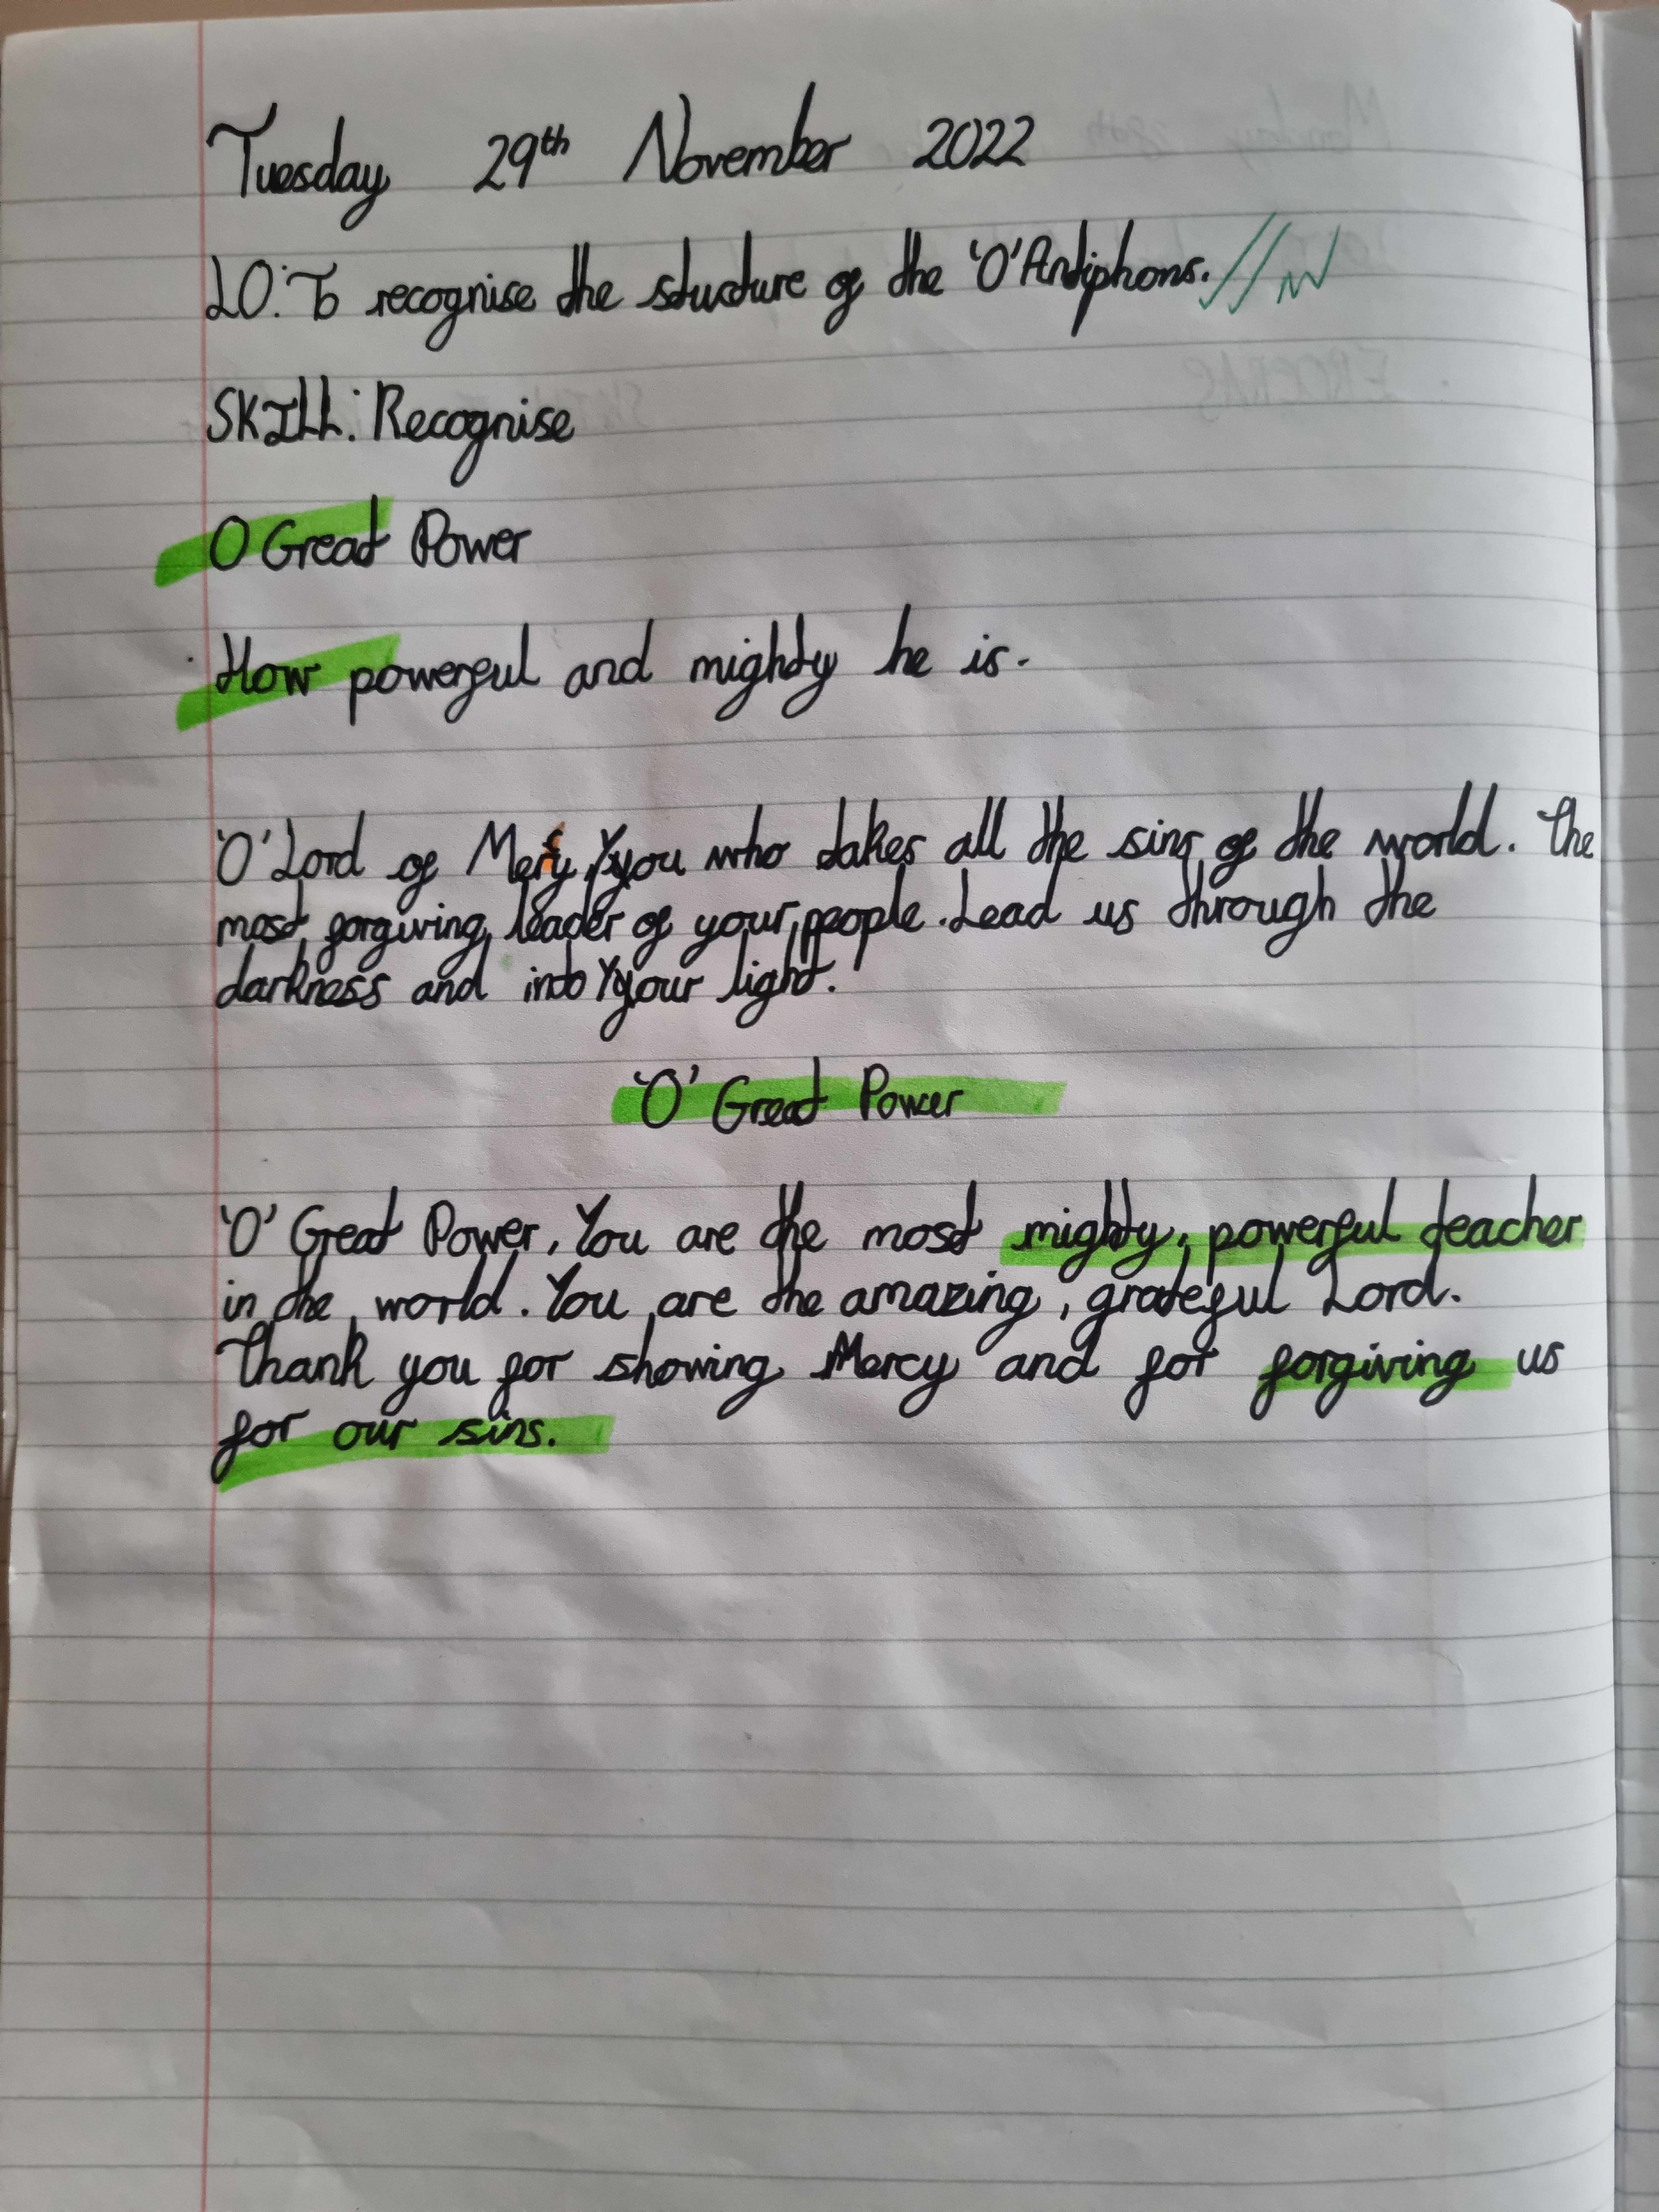 Tuesday 29th November 2022
LO: To recognise the structure of the 'O' Antiphons.
SKILL: Recognise
O Great Power
How powerful and mighty he is.
'O' Lord of Mercy, you who takes all the sins of the world. The
most forgiving leader of your people. Lead us through the
darkness and into your light.
'O' Great Power
'O' Great Power, You are the most mighty, powerful teacher
in the world. You are the amazing, grateful Lord.
Thank you for showing Mercy and for forgiving us
for our sins.